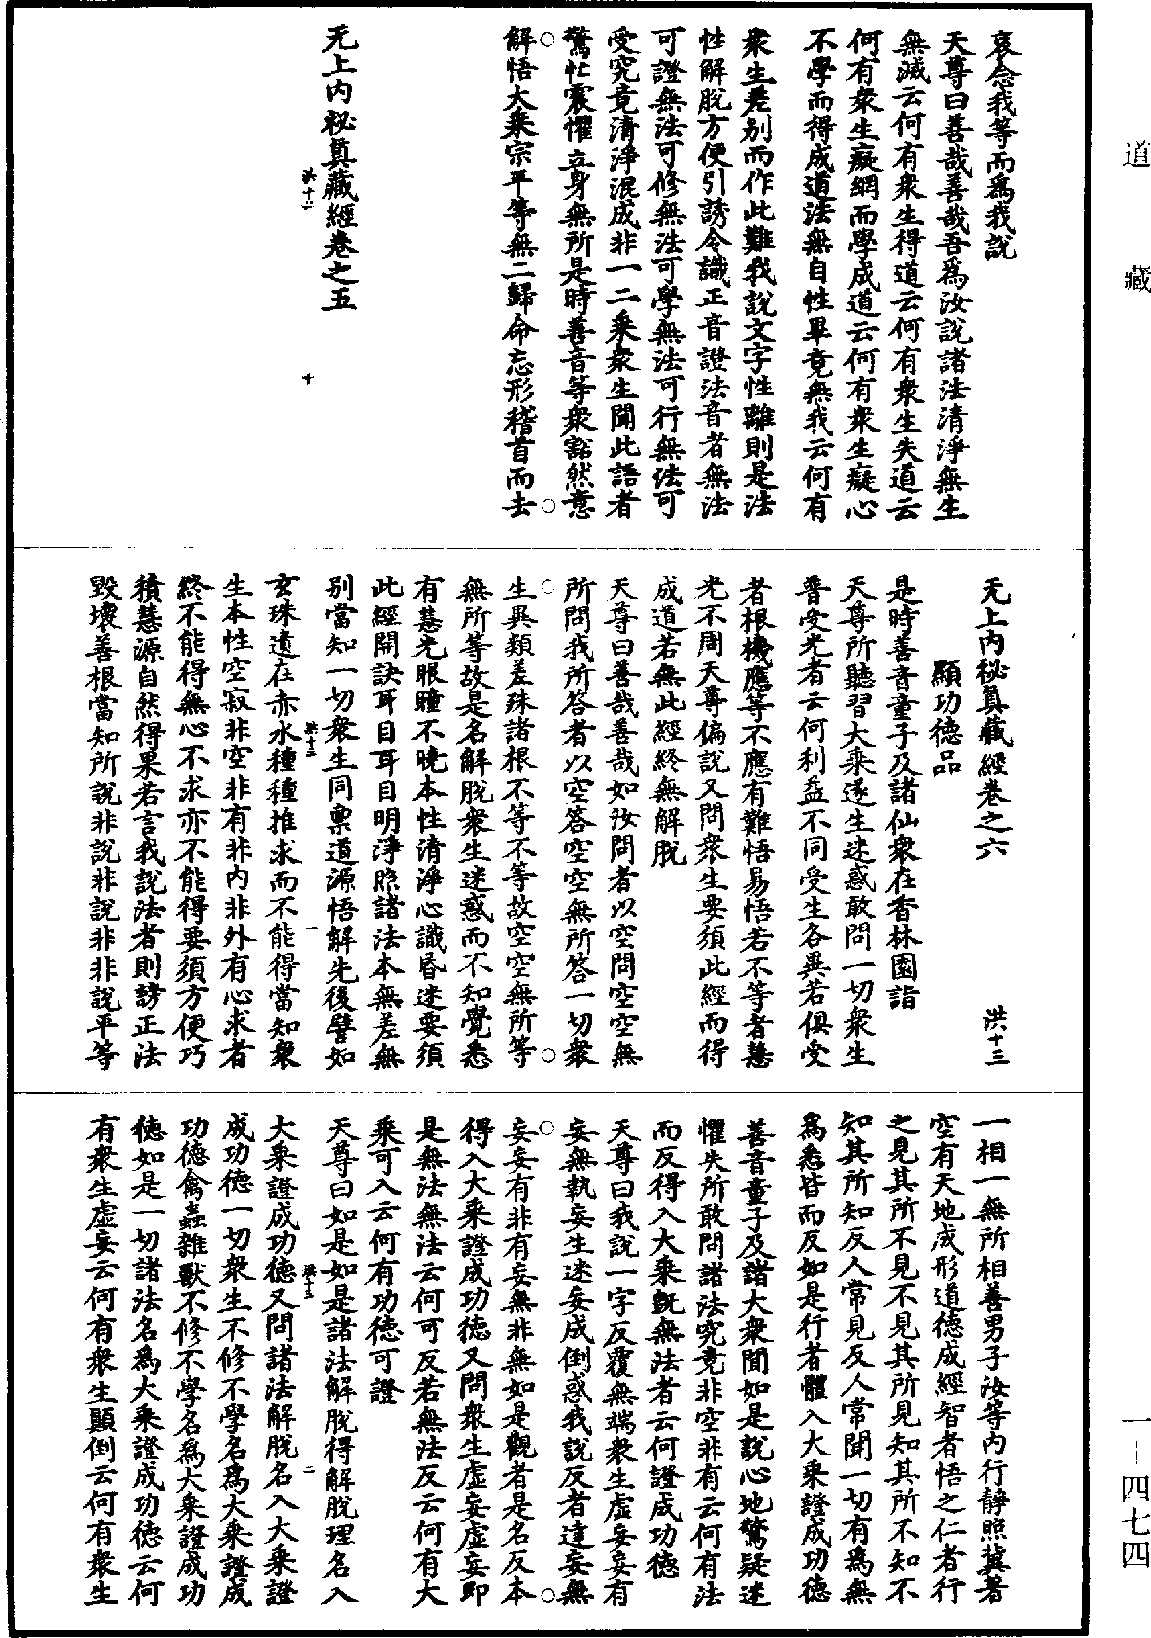 道藏
一－四七四
哀念我等而爲我說
天尊曰善哉善哉吾爲汝說諸法清淨無生
無滅云何有衆生得道云何有衆生失道云
何有衆生癡網而學成道云何有衆生癡心
不學而得成道法無自性畢竟無我云何有
衆生差别而作此難我說文字性離則是法
性解脫方便引誘令識正音證法音者無法
可證無法可修無法可學無法可行無法可
受究竟清淨混成非一二乘衆生聞此語者
驚忙震懼立身無所是時善音等衆豁然意
解悟大乘宗平等無二歸命忘形稽首而去
无上内秘真藏經卷之五
洪十二
十
无上内秘真藏經卷之六
洪十三
顯功德品
是時善音童子及諸仙衆在香林園詣
天尊所聽習大乘遂生迷惑敢問一切衆生
普受光者云何利益不同受生各異若俱受
者根機應等不應有難悟易悟若不等者慧
光不周天尊偏說又問衆生要須此經而得
成道若無此經終無解脫
天尊曰善哉善哉如汝問者以空問空空無
所問我所答者以空答空空無所答一切衆
生異類差殊諸根不等不等故空空無所等
無所等故是名解脫衆生迷惑而不知覺悉
有慧光眼瞳不曉本性清淨心識昏迷要須
此經開訣耳目耳目明淨照諸法本無差無
别當知一切衆生同稟道源悟解先後譬如
洪十三
一
玄珠遺在赤水種種推求而不能得當知衆
生本性空寂非空非有非内非外有心求者
終不能得無心不求亦不能得要須方便巧
積慧源自然得果若言我說法者則謗正法
毀壞善根當知所說非說非說非非說平等
一相一無所相善男子汝等内行靜照冀著
空有天地成形道德成經智者悟之仁者行
之見其所不見不見其所見知其所不知不
知其所知反人常見反人常聞一切有爲無
爲悉皆而反如是行者體入大乘證成功德
善音童子及諸大衆聞如是說心地驚疑迷
懼失所敢問諸法究竟非空非有云何有法
而反得入大乘旣無法者云何證成功德
天尊曰我說一字反覆無端衆生虛妄妄有
妄無執妄生迷妄成倒惑我說反者達妄無
妄妄有非有妄無非無如是觀者是名反本
得入大乘證成功德又問衆生虛妄虛妄即
是無法無法云何可反若無法反云何有大
乘可入云何有功德可證
天尊曰如是如是諸法解脫得解脫理名入
洪十三
二
大乘證成功德又問諸法解脫名入大乘證
成功德一切衆生不修不學名爲大乘證成
功德禽蟲雜獸不修不學名爲大乘證成功
德如是一切諸法名爲大乘證成功德云何
有衆生虛妄云何有衆生顛倒云何有衆生